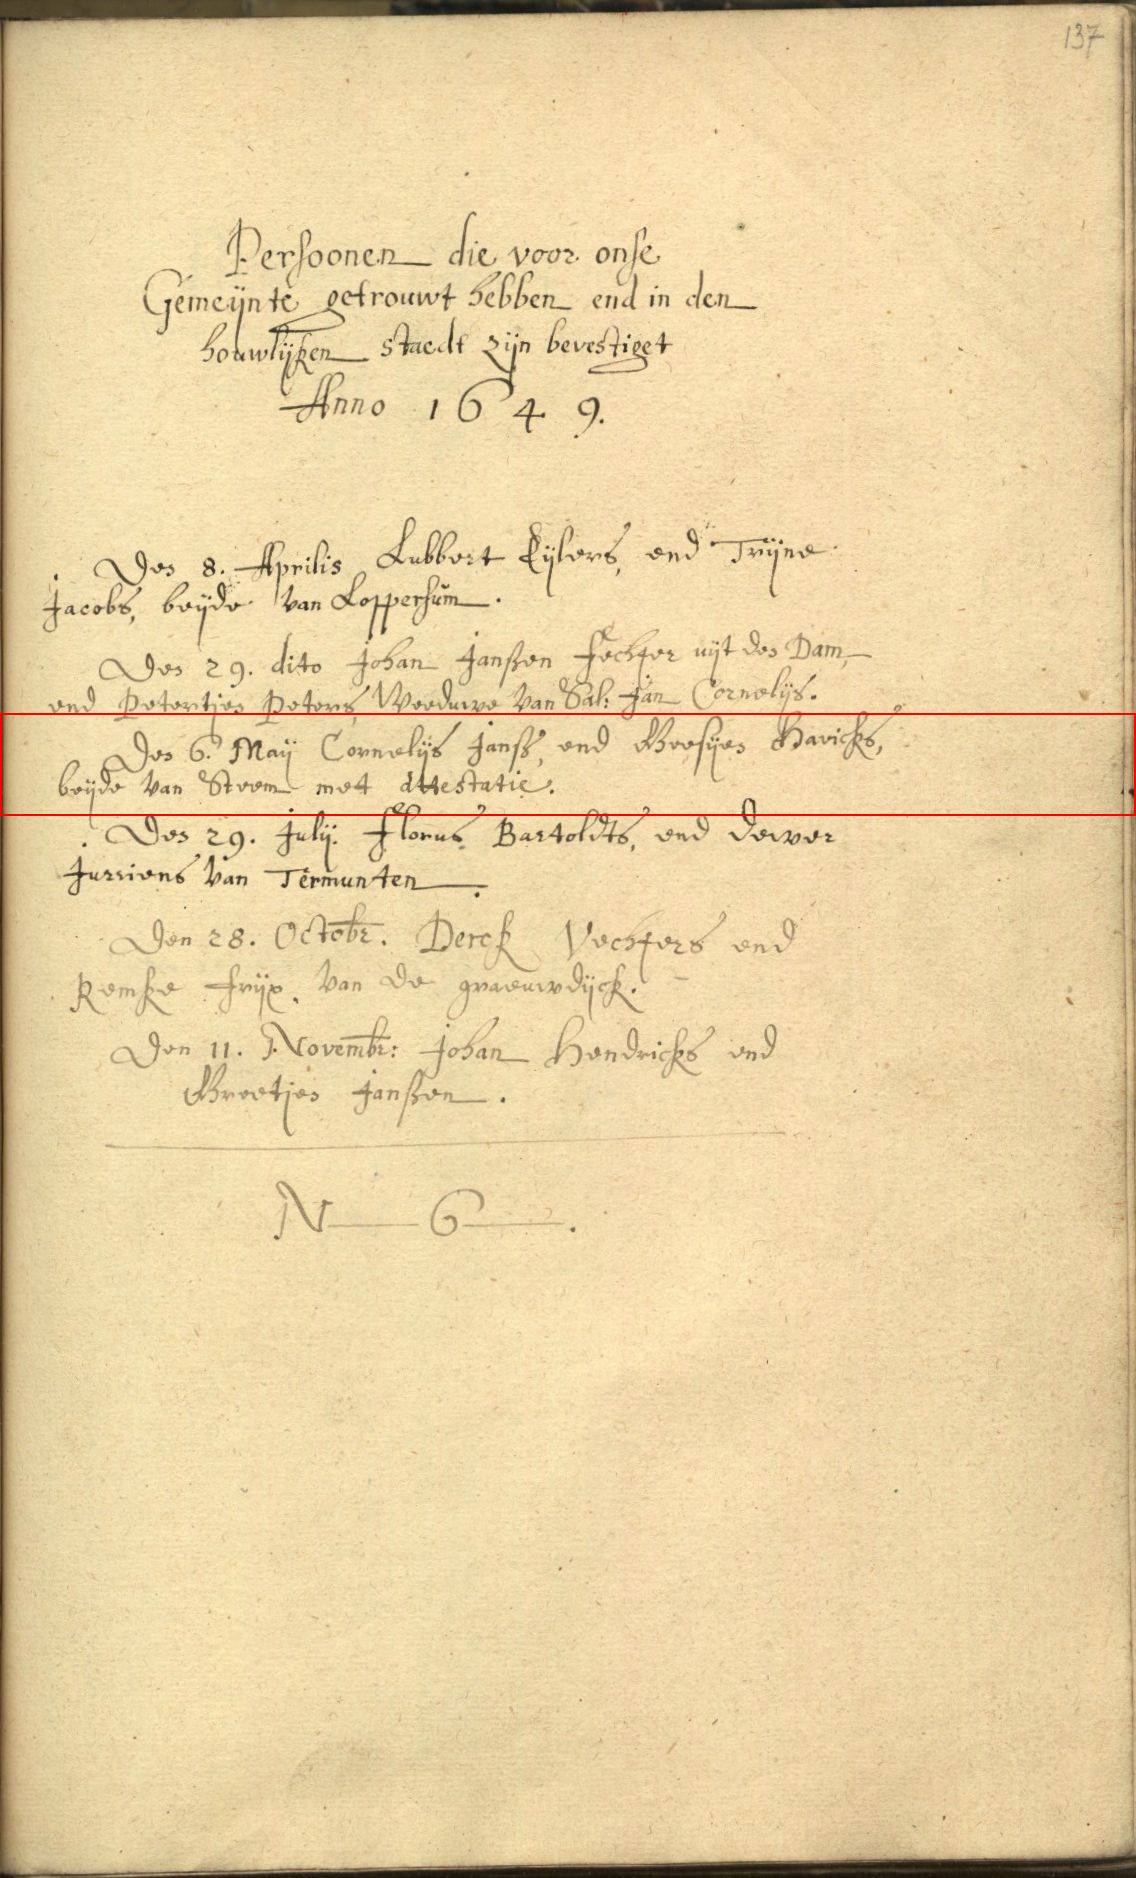 137
Persoonen die voor onse
Gemeijnte getrouwt hebben end in den
houwlijken staedt zijn bevestiget
Anno 1649.
Den 8. Aprilis Lubbert Eijlers, end Trijne
Jacobs, beijde van Loppersum.
Den 29. dito Johan Janßen Fechter uijt den Dam,
end Petertien Peters, Weeduwe van Sal: Jan Cornelijs.
Den 6. Maij Cornelijs Janß, end Haricks,
beijde van Steem met attestatie.
Den 29. Julij. Bartoldts, end Dewer
Jurriens van Termunten.
Den 28. Octobr. Derck Vechters end
Remke Frijx. van de graeuwdijck.
Den 11. Novembr: Johan Hendricks end
Greetjen Janßen.
N 6.